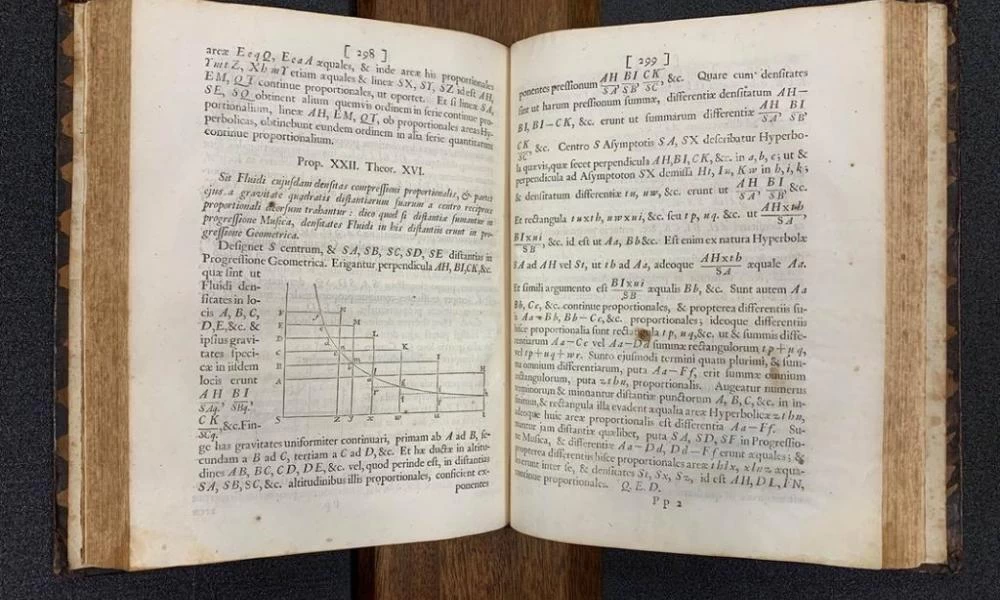 [ 298 ]
areæ EeqQ, EeaA æquales, & inde areæ his proportionales
YmtZ, XhmY etiam æquales & lineæ SX, SY, SZ id est AH,
EM, QT continue proportionales, ut oportet. Et si lineæ SA,
SE, SQ obtinent alium quemvis ordinem in serie continue pro-
portionalium, lineæ AH, EM, QT, ob proportionales areas Hy-
perbolicas, obtinebunt eundem ordinem in alia serie quantitatum
continue proportionalium.
Prop. XXII. Theor. XVI.
Sit Fluidi cujusdam densitas compressioni proportionalis, & partes
ejus a gravitate quadratis distantiarum suarum a centro reciproce
proportionali deorsum trahantur: dico quod si distantiæ sumantur in
progressione Musica, densitates Fluidi in his distantiis erunt in pro-
gressione Geometrica.
Designet S centrum, & SA, SB, SC, SD, SE distantias in
Progressione Geometrica. Erigantur perpendicula AH, BI, CK, &c.
quæ sint ut
Fluidi den-
sitates in lo-
cis A, B, C,
D, E, &c. &
ipsius gravi-
tates speci-
cæ in iisdem
locis erunt
AH BI
SAq.' SBq.'
CK
SCq.' &c. Fin-
ge has gravitates uniformiter continuari, primam ab A ad B, se-
cundam a B ad C, tertiam a C ad D, &c. Et hæ ductæ in altitu-
dines AB, BC, CD, DE, &c. vel, quod perinde est, in distantias
SA, SB, SC, &c. altitudinibus illis proportionales, conficient ex-
ponentes
[ 299 ]
ponentes pressionum AH/SA, BI/SB, CK/SC, &c. Quare cum densitates
sint ut harum pressionum summæ, differentiæ densitatum AH—
BI, BI—CK, &c. erunt ut summarum differentiæ AH/SA, BI/SB,
CK/SC, &c. Centro S Asymptotis SA, SX describatur Hyperbo-
la quævis, quæ secet perpendicula AH, BI, CK, &c. in a, b, c; ut &
perpendicula ad Asymptoton SX demissa Ht, Iu, Kw in h, i, k;
& densitatum differentiæ tu, uw, &c. erunt ut AH/SA, BI/SB, &c.
Et rectangula tu x th, uw x ui, &c. seu tp, uq, &c. ut AH x th/SA,
BI x ui/SB, &c. id est ut Aa, Bb &c. Est enim ex natura Hyperbolæ
SA ad AH vel St, ut th ad Aa, adeoque AH x th/SA æquale Aa.
Et simili argumento est BI x ui/SB æqualis Bb, &c. Sunt autem Aa
Bb, Cc, &c. continue proportionales, & propterea differentiis su-
is Aa—Bb, Bb—Cc, &c. proportionales; ideoque differentiis
hisce proportionalia sunt rectangula tp, uq, &c. ut & summis diffe-
rentiarum Aa—Cc vel Aa—Dd summæ rectangulorum tp+uq,
vel tp+uq+wr. Sunto ejusmodi termini quam plurimi, & sum-
ma omnium differentiarum, puta Aa—Ff, erit summæ omnium
rectangulorum, puta zthn, proportionalis. Augeatur numerus
terminorum & minuantur distantiæ punctorum A, B, C, &c. in in-
finitum, & rectangula illa evadent æqualia areæ Hyperbolicæ zthn,
adeoque huic areæ proportionalis est differentia Aa—Ff. Su-
mantur jam distantiæ quælibet, puta SA, SD, SF in Progressio-
ne Musica, & differentiæ Aa—Dd, Dd—Ff erunt æquales; &
propterea differentiis hisce proportionales areæ thlx, xlnz æqua-
les erunt inter se, & densitates St, Sx, Sz, id est AH, DL, FN,
continue proportionales. Q. E. D.
Pp 2